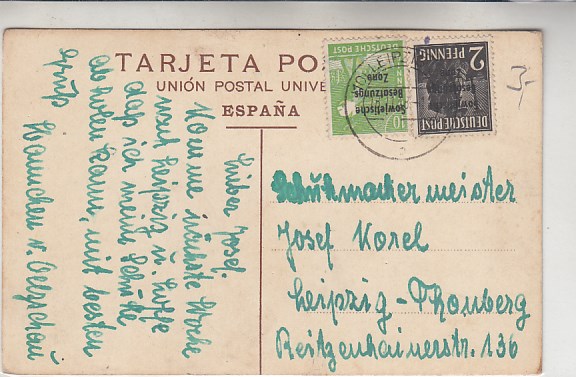 TARJETA PO
UNIÓN POSTAL UNIVE
ESPAÑA
DEUTSCHE POST
10
Sowjetische
Besatzungs
Zone
2
PFENNIG
DEUTSCHE POST
LEIPZIG
3,-
Lieber Josef.
Komme nächste Woche
nach Leipzig u. hoffe
daß ich meine Schuhe
abholen kann, mit besten
Gruß
v. Oelzschau
Schuhmachermeister
Josef Korel
Leipzig-Thonberg
Reitzenhainerstr. 136